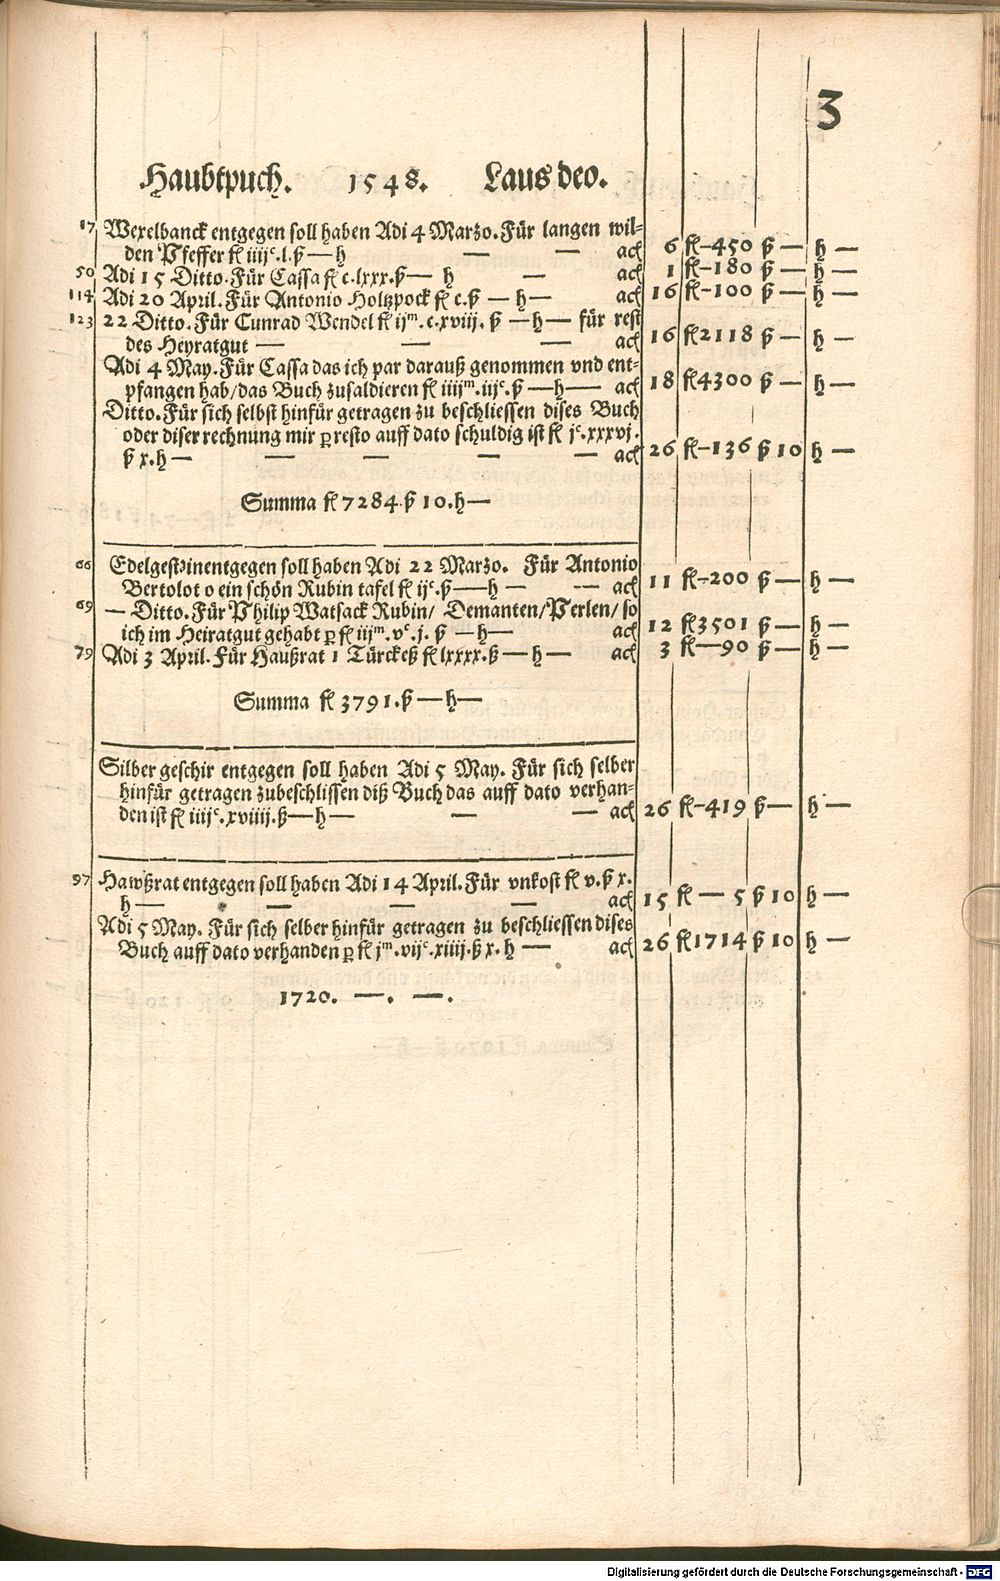 3
Haubtpuch. 1548. Laus deo.
17 Wexelbanck entgegen soll haben Adi 4 Marzo. Für langen wil-
den Pfeffer fl iiijᶜ.l.ß — h — — acℓ 6 fl — 450 ß — h —
50 Adi 15 Ditto. Für Cassa fl c.lxxx.ß — h — acℓ 1 fl — 180 ß — h —
114 Adi 20 April. Für Antonio Holtzpock fl c.ß — h — acℓ 16 fl — 100 ß — h —
123 22 Ditto. Für Cunrad Wendel fl ijᵐ.c.xviij. ß — h — für rest
des Heyratgut — — — acℓ 16 fl 2118 ß — h —
Adi 4 May. Für Cassa das ich par darauß genommen vnd ent-
pfangen hab/das Buch zusaldieren fl iiijᵐ.iijᶜ.ß — h — acℓ 18 fl 4300 ß — h —
Ditto. Für sich selbst hinfür getragen zu beschliessen dises Buch
oder diser rechnung mir ꝑ resto auff dato schuldig ist fl jᶜ.xxxvj.
ß x.h — — — — — acℓ 26 fl — 136 ß 10 h —
Summa fl 7284 ß 10.h —
66 Edelgestꝛin entgegen soll haben Adi 22 Marzo. Für Antonio
Bertolot o ein schön Rubin tafel fl ijᶜ.ß — h — — acℓ 11 fl — 200 ß — h —
69 — Ditto. Für Philip Watsack Rubin/ Demanten/Perlen/ so
ich im Heiratgut gehabt ꝑ fl iijᵐ.vᶜ.j. ß — h — acℓ 12 fl 3501 ß — h —
79 Adi 3 April. Für Haußrat 1 Türckeß fl lxxxx.ß — h — acℓ 3 fl — 90 ß — h —
Summa fl 3791.ß — h —
Silber geschir entgegen soll haben Adi 5 May. Für sich selber
hinfür getragen zubeschlissen diß Buch das auff dato verhan-
den ist fl iiijᶜ.xviiij.ß — h — — — acℓ 26 fl — 419 ß — h —
97 Hawßrat entgegen soll haben Adi 14 April. Für vnkost fl v.ß x.
h — — — — acℓ 15 fl — 5 ß 10 h —
Adi 5 May. Für sich selber hinfür getragen zu beschliessen dises
Buch auff dato verhanden ꝑ fl jᵐ.vijᶜ.xiiij.ß x.h — acℓ 26 fl 1714 ß 10 h —
1720. —. —.
Digitalisierung gefördert durch die Deutsche Forschungsgemeinschaft - DFG